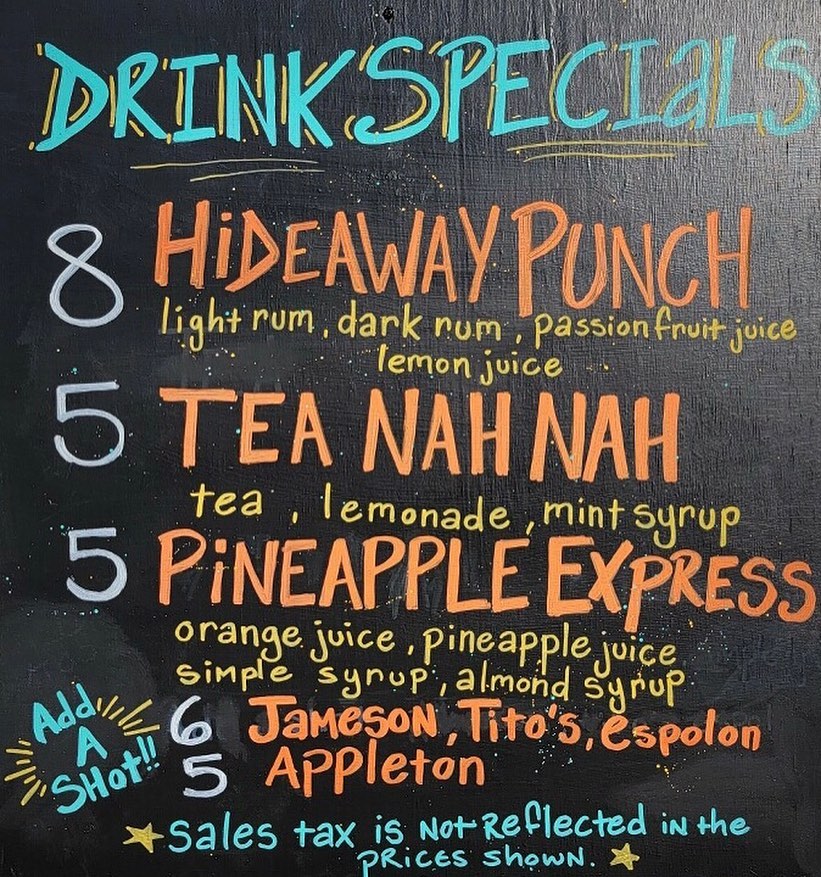 DRINK SPECIALS
8 HiDEAWAY PUNCH
light rum, dark rum, passion fruit juice
lemon juice
5 TEA NAH NAH
tea, lemonade, mint syrup
5 PiNEAPPLE EXPRESS
orange juice, pineapple juice
simple syrup, almond syrup
Add
A
SHot!!
6 JameSON, Tito's, espolon
5 Appleton
Sales tax is Not Reflected in the
PRICES SHOWN.